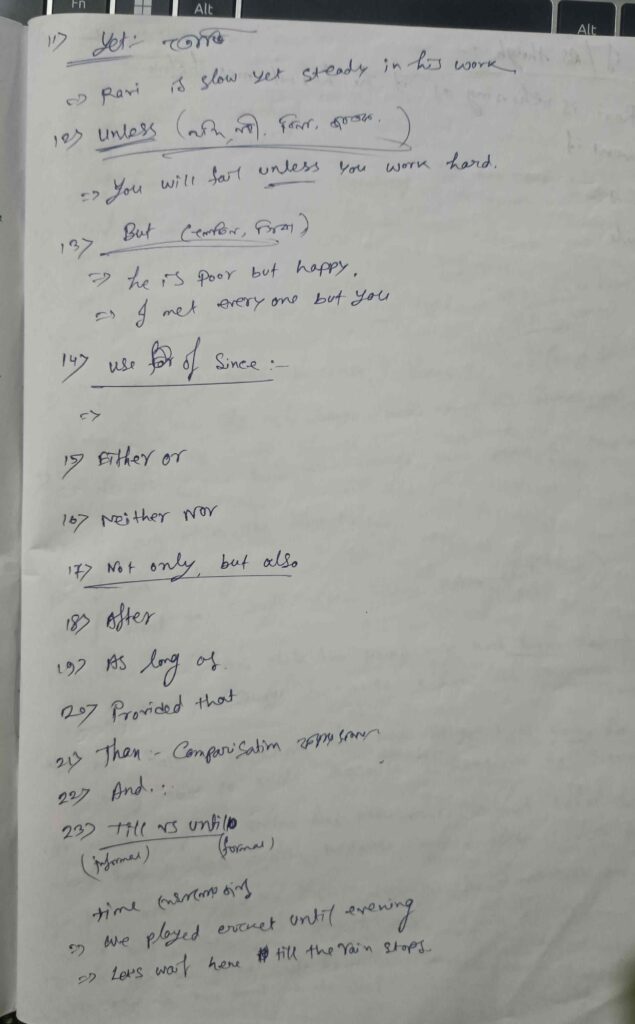 Fn
Alt
Alt
11> Yet:-
=> Ravi is slow yet steady in his work
12> unless (
=> You will fail unless you work hard.
13> But (
=> he is poor but happy.
=> I met every one but you
14> use of Since :-
=>
15> Either or
16> Neither Nor
17> Not only, but also
18> After
19> As long as.
20> Provided that
21> Than :- Comparisation
22> And. :
23> Till vs until
(informal) (formal)
time
=> we played cricket until evening
=> Let's wait here till the rain stops.